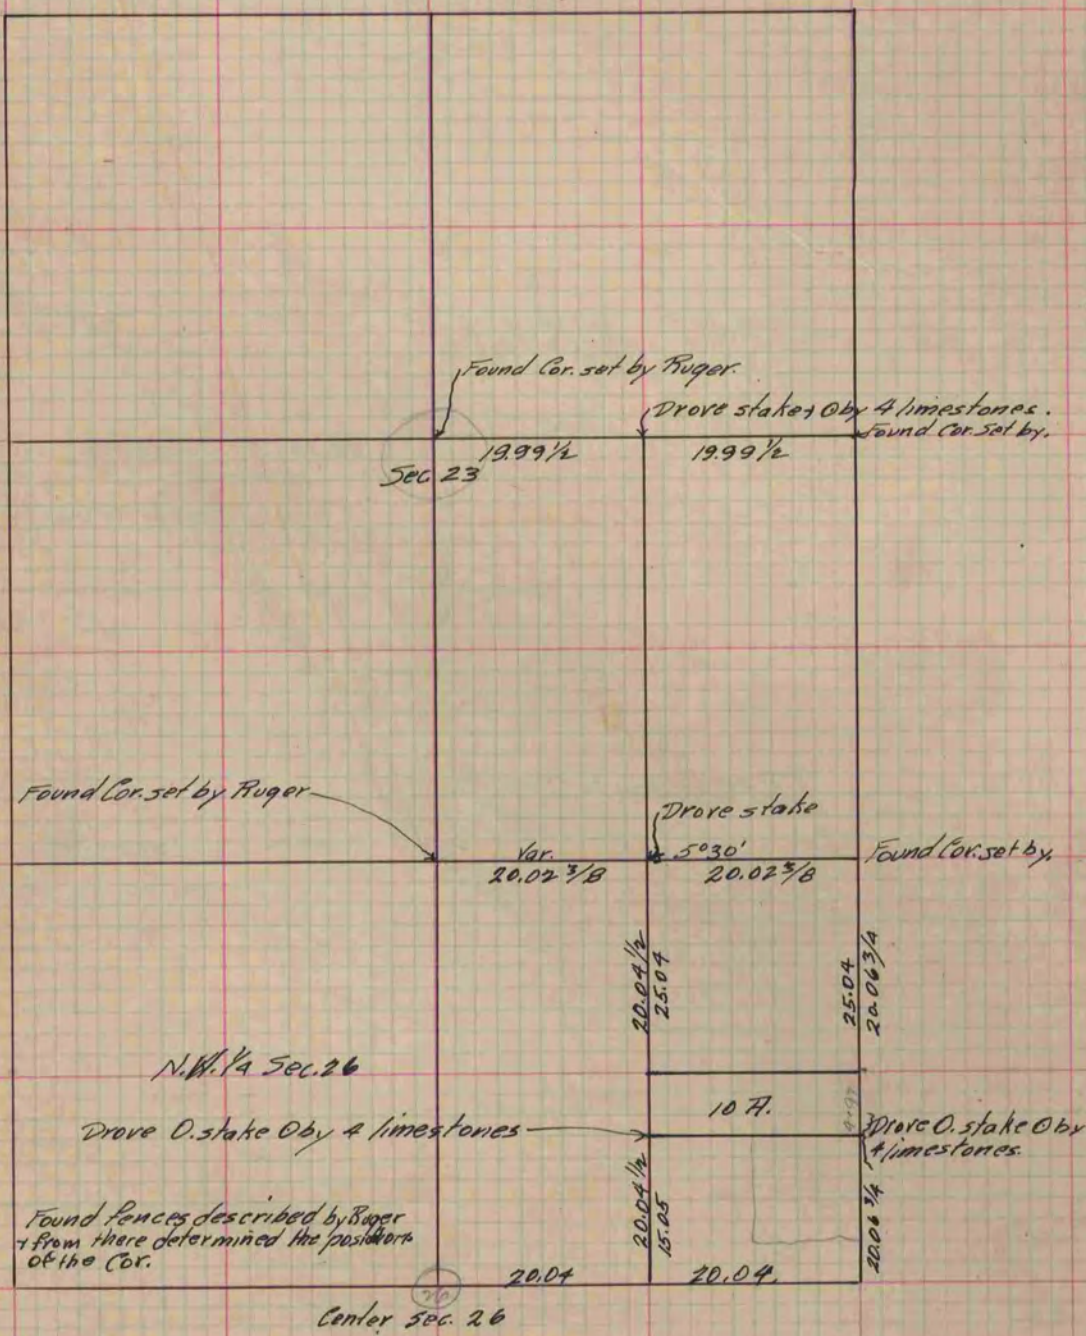 Found Cor. set by Ruger.
Drove stake + O by 4 limestones.
Found Cor. Set by.
19.99 1/2
19.99 1/2
Sec. 23
Found Cor. set by Ruger
Drove stake
Var.
5°30'
Found Cor. set by.
20.02 3/8
20.02 3/8
20.04 1/2
25.04
25.04
20.06 3/4
N.W. 1/4 Sec. 26
10 A.
Drove O. stake O by 4 limestones
Drove O. stake O by
4 limestones.
20.04 1/2
15.05
20.06 3/4
Found fences described by Ruger
+ from there determined the position
of the Cor.
20.04
20.04.
26
Center Sec. 26